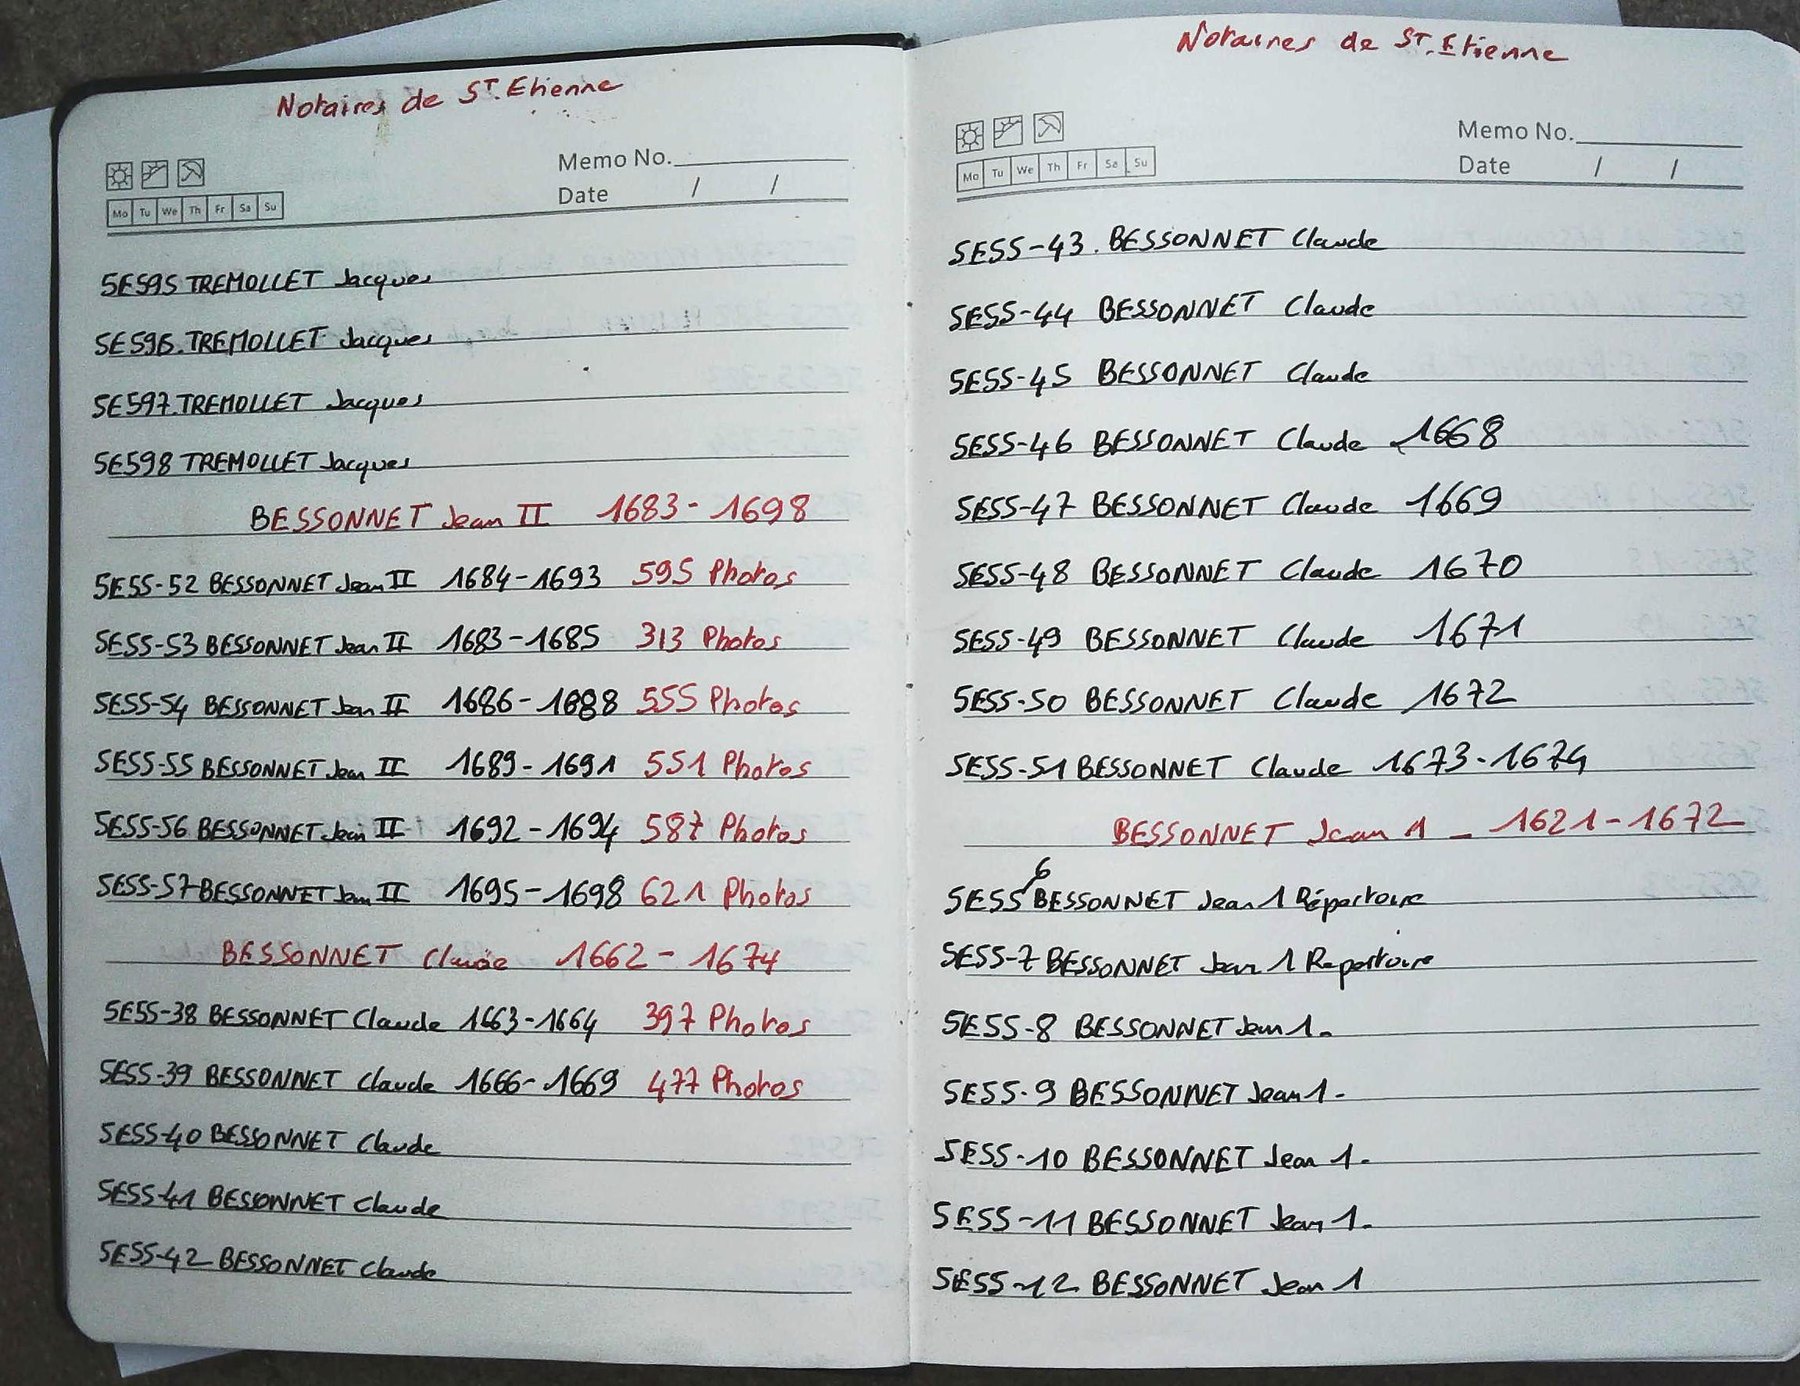 Notaires de ST. Etienne
Memo No.
Date / /
Mo Tu We Th Fr Sa Su
5E595 TREMOLLET Jacques
5E596. TREMOLLET Jacques
5E597. TREMOLLET Jacques
5E598 TREMOLLET Jacques
BESSONNET Jean II 1683 - 1698
5E55-52 BESSONNET Jean II 1684-1693 595 Photos
5E55-53 BESSONNET Jean II 1683-1685 313 Photos
5E55-54 BESSONNET Jean II 1686-1688 555 Photos
5E55-55 BESSONNET Jean II 1689-1691 551 Photos
5E55-56 BESSONNET Jean II 1692-1694 587 Photos
5E55-57 BESSONNET Jean II 1695-1698 621 Photos
BESSONNET Claude 1662 - 1674
5E55-38 BESSONNET Claude 1663-1664 397 Photos
5E55-39 BESSONNET Claude 1666-1669 477 Photos
5E55-40 BESSONNET Claude
5E55-41 BESSONNET Claude
5E55-42 BESSONNET Claude
Notaires de ST. Etienne
Memo No.
Date / /
Mo Tu We Th Fr Sa Su
5E55-43. BESSONNET Claude
5E55-44 BESSONNET Claude
5E55-45 BESSONNET Claude
5E55-46 BESSONNET Claude 1668
5E55-47 BESSONNET Claude 1669
5E55-48 BESSONNET Claude 1670
5E55-49 BESSONNET Claude 1671
5E55-50 BESSONNET Claude 1672
5E55-51 BESSONNET Claude 1673-1674
BESSONNET Jean 1 - 1621-1672
5E55/6 BESSONNET Jean 1 Répertoire
5E55-7 BESSONNET Jean 1 Repertoire
5E55-8 BESSONNET Jean 1-
5E55-9 BESSONNET Jean 1-
5E55-10 BESSONNET Jean 1-
5E55-11 BESSONNET Jean 1-
5E55-12 BESSONNET Jean 1